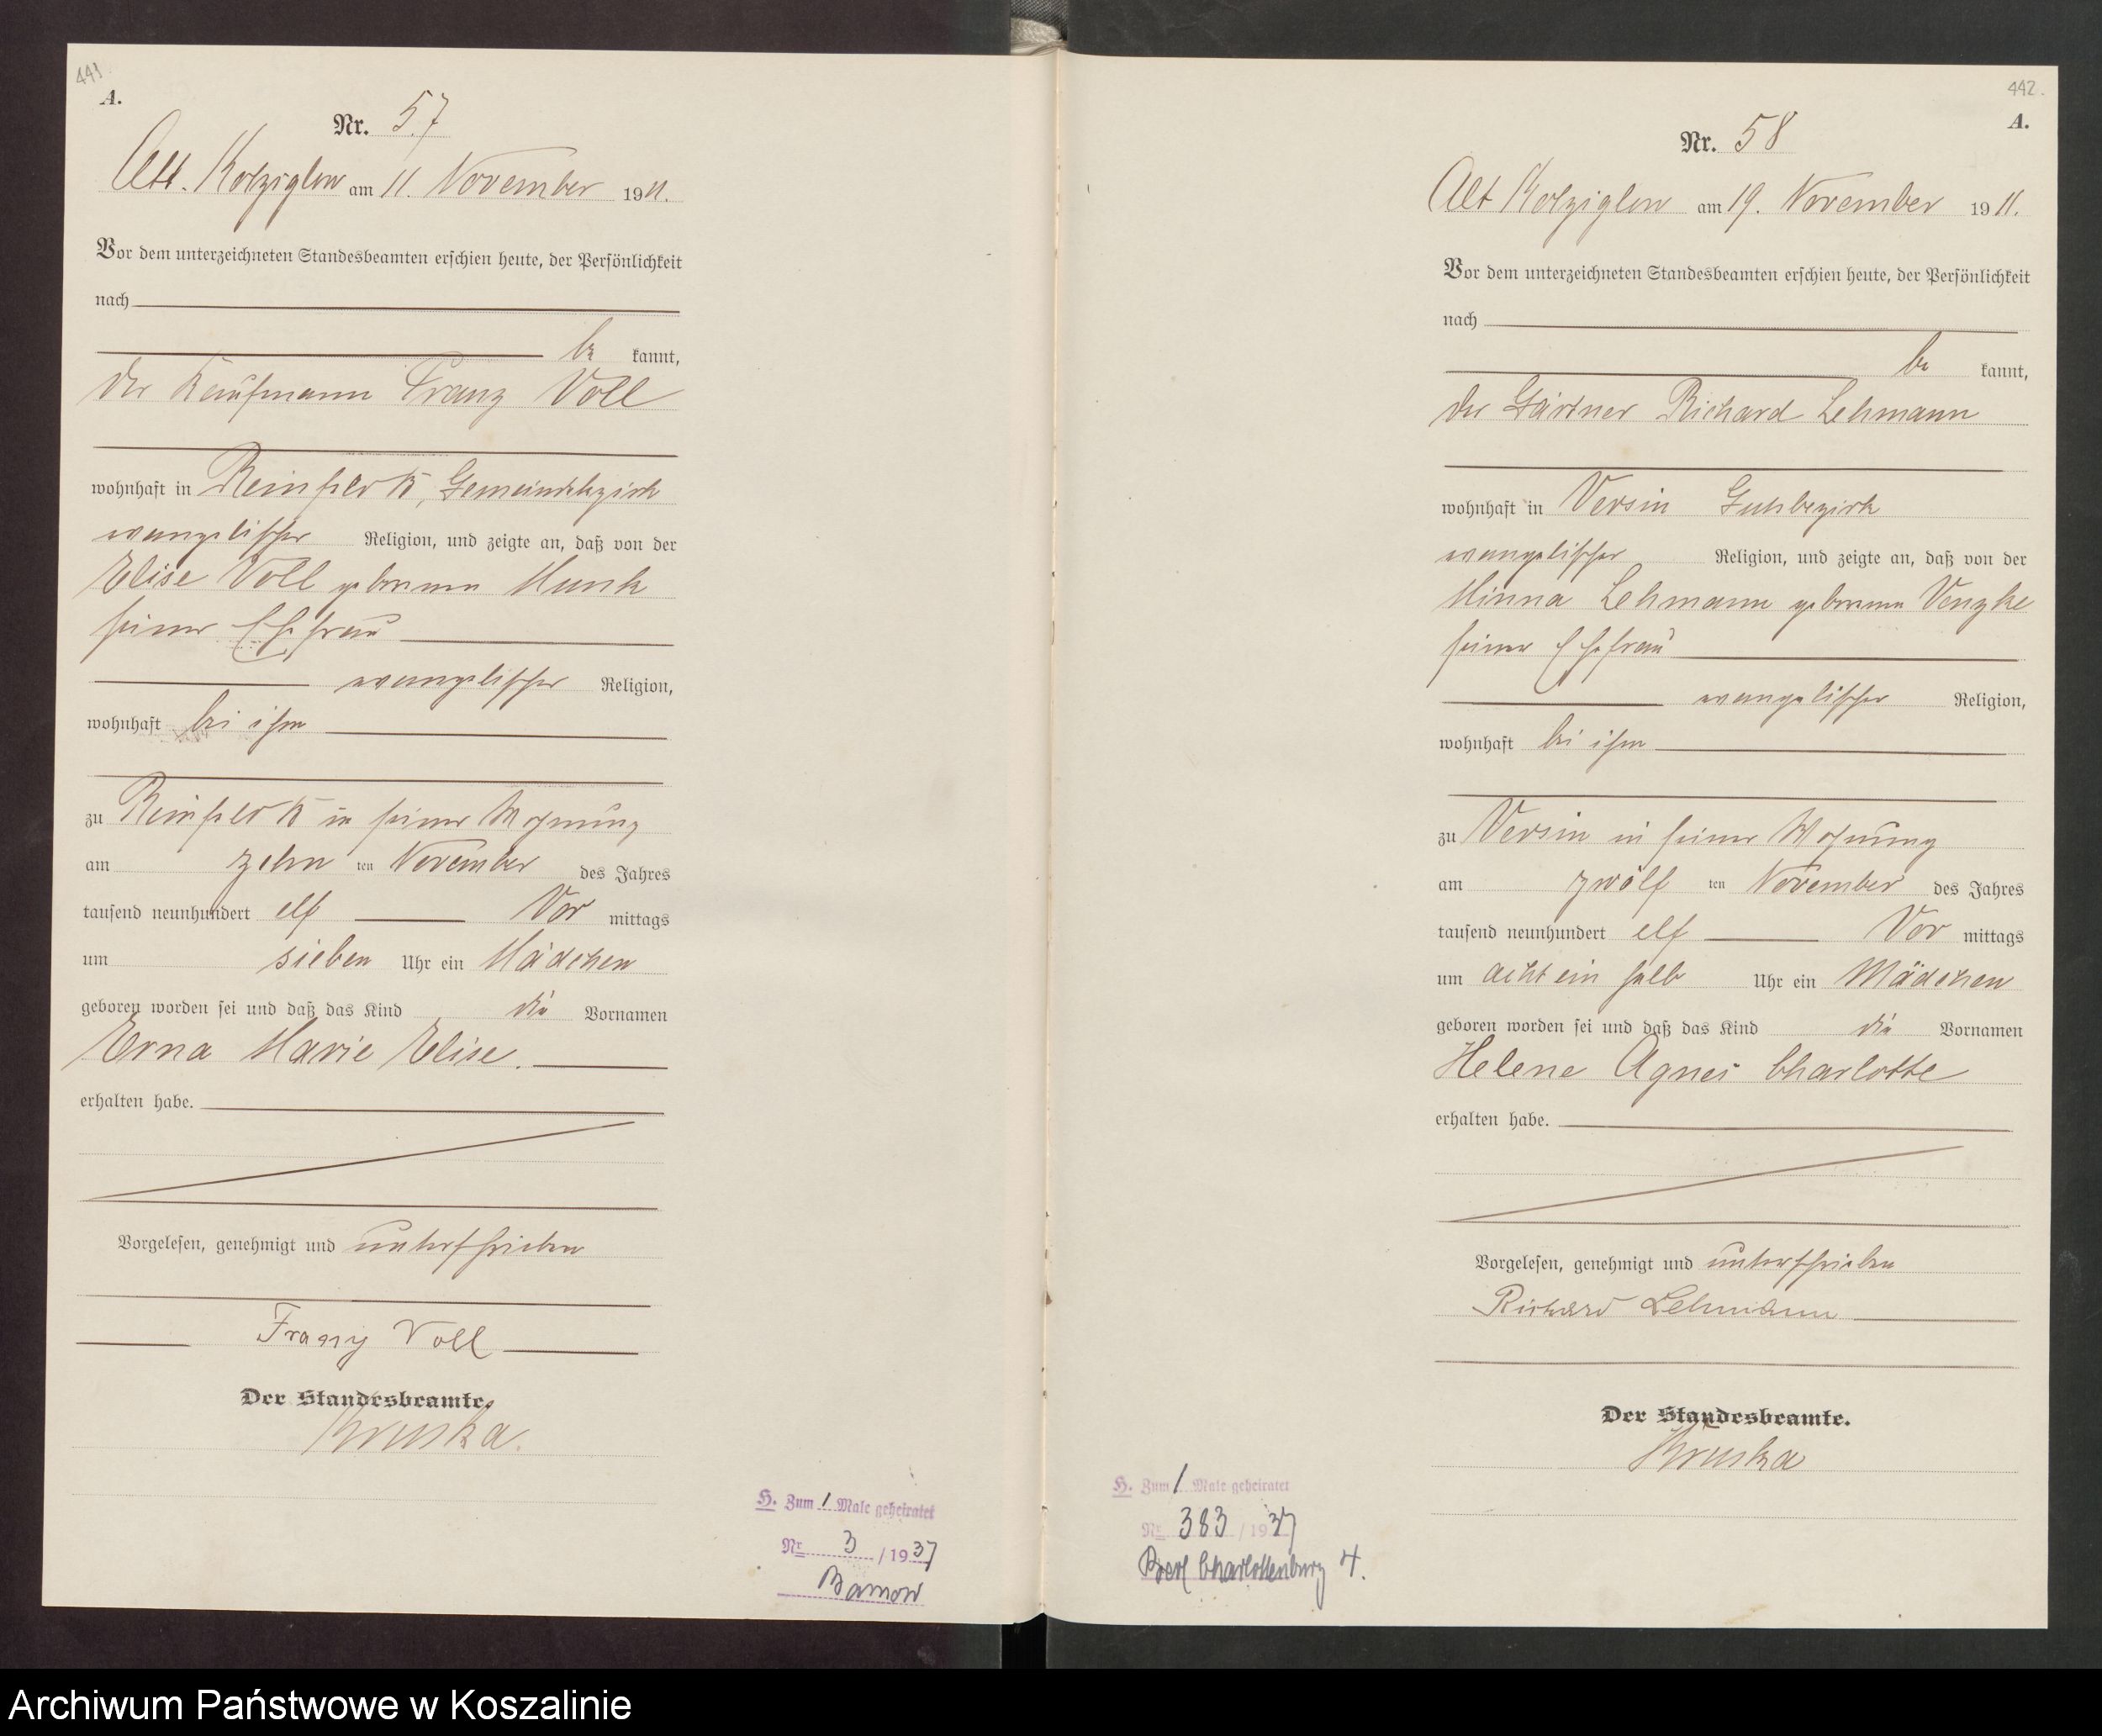 441
A.
Nr. 57
Alt. Kolziglow am 11. November 1911.
Vor dem unterzeichneten Standesbeamten erschien heute, der Persönlichkeit
nach
be kannt,
der Kaufmann Franz Voll
wohnhaft in Reinfeld B, Gemeindebezirk
evangelischer Religion, und zeigte an, daß von der
Elise Voll geborenen Munk
seiner Ehefrau
evangelischer Religion,
wohnhaft bei ihm
zu Reinfeld B in seiner Wohnung
am zehn ten November des Jahres
tausend neunhundert elf Vor mittags
um sieben Uhr ein Mädchen
geboren worden sei und daß das Kind die Vornamen
Erna Marie Elise.
erhalten habe.
Vorgelesen, genehmigt und unterschrieben
Franz Voll
Der Standesbeamte.
Kruska.
H. Zum 1 Male geheiratet
Nr 3 / 1937
442.
A.
Nr. 58
Alt Kolziglow am 19. November 1911.
Vor dem unterzeichneten Standesbeamten erschien heute, der Persönlichkeit
nach
be kannt,
der Gärtner Richard Lehmann
wohnhaft in Versin Gutsbezirk
evangelischer Religion, und zeigte an, daß von der
Minna Lehmann geborenen Venzke
seiner Ehefrau
evangelischer Religion,
wohnhaft bei ihm
zu Versin in seiner Wohnung
am zwölf ten November des Jahres
tausend neunhundert elf Vor mittags
um acht ein halb Uhr ein Mädchen
geboren worden sei und daß das Kind die Vornamen
Helene Agnes Charlotte
erhalten habe.
Vorgelesen, genehmigt und unterschrieben
Richard Lehmann
Der Standesbeamte.
Kruska
H. Zum 1 Male geheiratet
Nr 383 / 1937
Berl Charlottenburg 4.
Archiwum Państwowe w Koszalinie